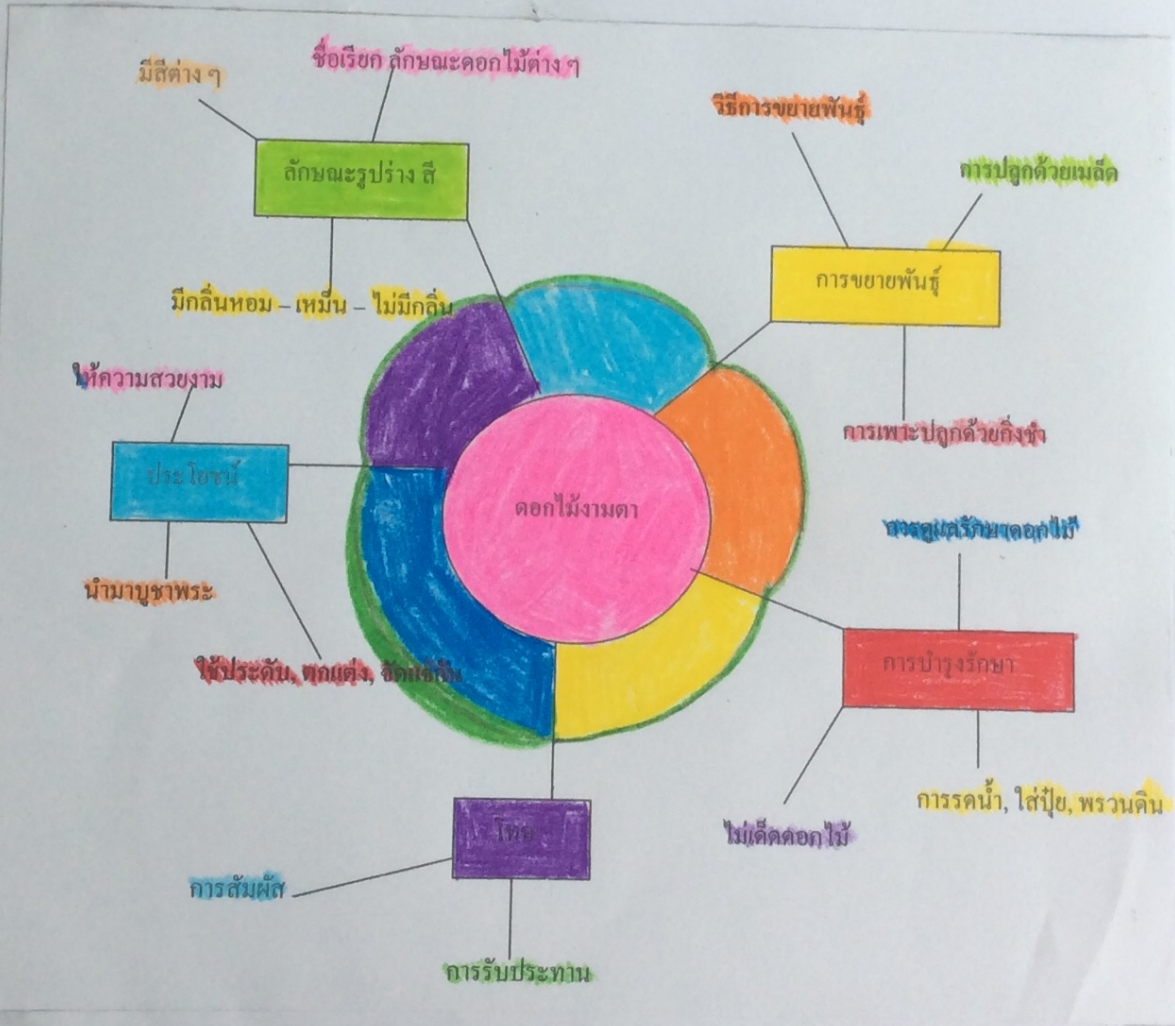 ชื่อเรียก ลักษณะดอกไม้ต่าง ๆ
มีสีต่าง ๆ
ลักษณะรูปร่าง สี
มีกลิ่นหอม – เหม็น – ไม่มีกลิ่น
วิธีการขยายพันธุ์
การปลูกด้วยเมล็ด
การขยายพันธุ์
การเพาะปลูกด้วยกิ่งชำ
ให้ความสวยงาม
ประโยชน์
นำมาบูชาพระ
ใช้ประดับ, ตกแต่ง, จัดแจกัน
ดอกไม้งามตา
การดูแลรักษาดอกไม้
การบำรุงรักษา
การรดน้ำ, ใส่ปุ๋ย, พรวนดิน
ไม่เด็ดดอกไม้
โทษ
การสัมผัส
การรับประทาน